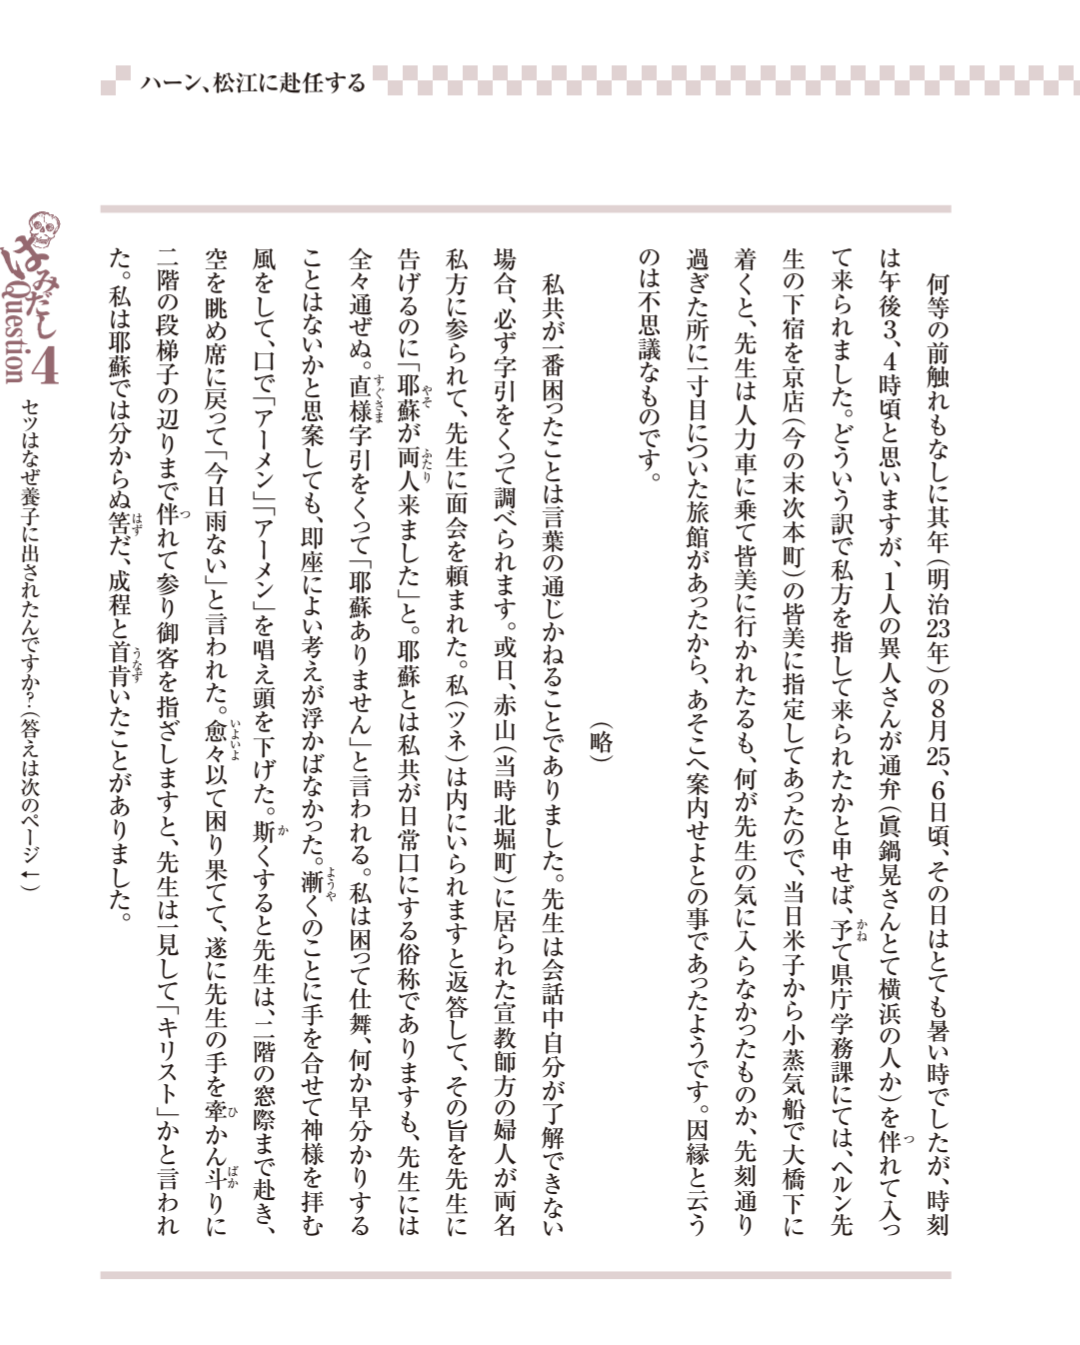 ハーン、松江に赴任する
何等の前触れもなしに其年(明治23年)の8月25、6日頃、その日はとても暑い時でしたが、時刻
は午後3、4時頃と思いますが、1人の異人さんが通弁(眞鍋晃さんとて横浜の人か)を伴れて入っ
て来られました。どういう訳で私方を指して来られたかと申せば、予て県庁学務課にては、ヘルン先
生の下宿を京店(今の末次本町)の皆美に指定してあったので、当日米子から小蒸気船で大橋下に
着くと、先生は人力車に乗て皆美に行かれたるも、何が先生の気に入らなかったものか、先刻通り
過ぎた所に一寸目についた旅館があったから、あそこへ案内せよとの事であったようです。因縁と云う
のは不思議なものです。
(略)
私共が一番困ったことは言葉の通じかねることでありました。先生は会話中自分が了解できない
場合、必ず字引をくって調べられます。或日、赤山(当時北堀町)に居られた宣教師方の婦人が両名
私方に参られて、先生に面会を頼まれた。私(ツネ)は内にいられますと返答して、その旨を先生に
告げるのに「耶蘇が両人来ました」と。耶蘇とは私共が日常口にする俗称でありますも、先生には
全々通ぜぬ。直様字引をくって「耶蘇ありません」と言われる。私は困って仕舞、何か早分かりする
ことはないかと思案しても、即座によい考えが浮かばなかった。漸くのことに手を合せて神様を拝む
風をして、口で「アーメン」「アーメン」を唱え頭を下げた。斯くすると先生は、二階の窓際まで赴き、
空を眺め席に戻って「今日雨ない」と言われた。愈々以て困り果てて、遂に先生の手を牽かん斗りに
二階の段梯子の辺りまで伴れて参り御客を指ざしますと、先生は一見して「キリスト」かと言われ
た。私は耶蘇では分からぬ筈だ、成程と首肯いたことがありました。
はみだし Question 4
セツはなぜ養子に出されたんですか?(答えは次のページ↓)